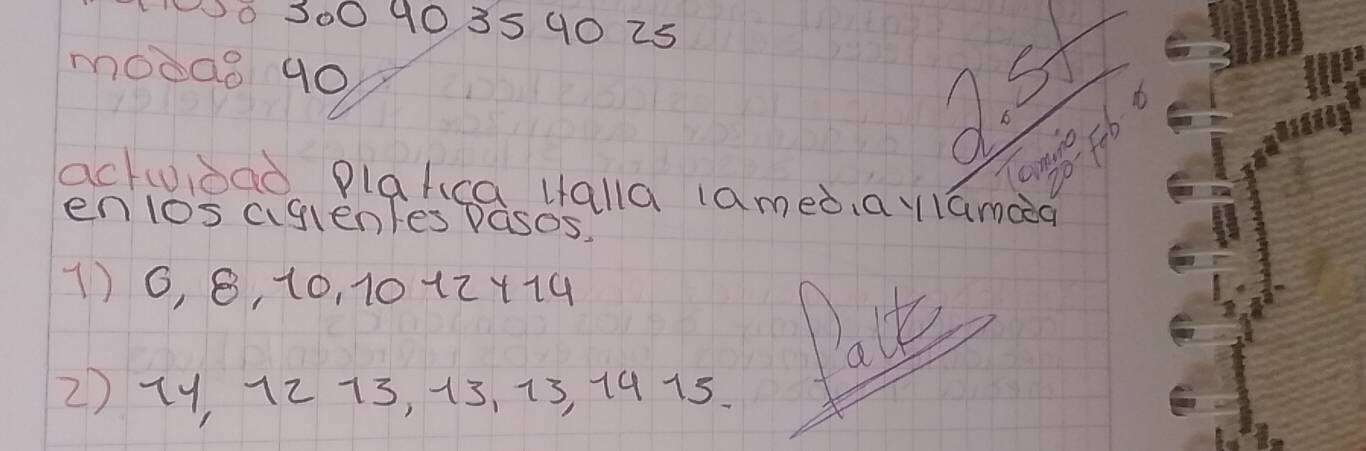 300 40 35 40 25
moda: 40
2.5
20 Feb
actividad platica Halla lamediaylamoda
en los agientes pasos.
1) 6, 8, 10, 10 12 y 14
Falta
2) 11, 12 13, 13, 13, 14 15.